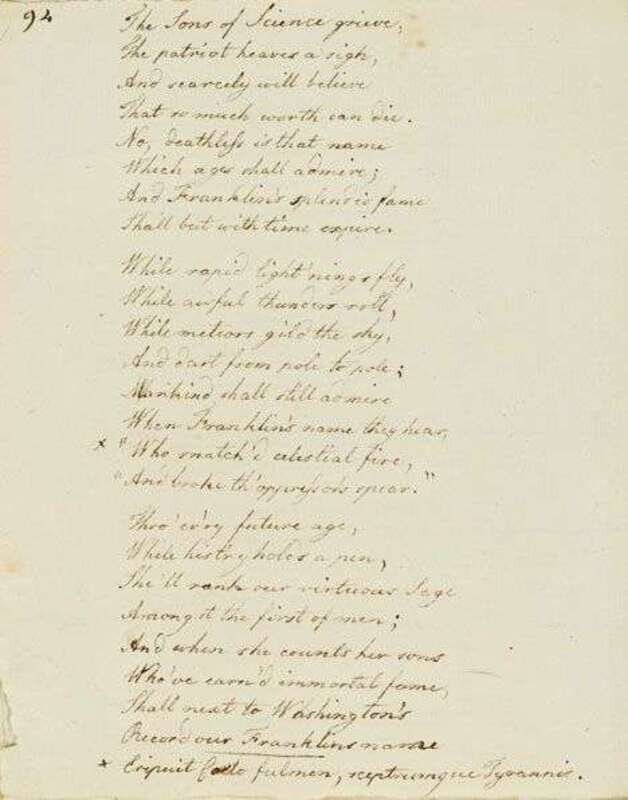 94
The Sons of Science grieve,
The patriot heaves a sigh,
And scarcely will believe
That so much worth can die.
No, deathless is that name
Which ages shall admire;
And Franklin's splendid fame
Shall but with time expire.
While rapid light'nings fly,
While awful thunders roll,
While meteors gild the sky,
And dart from pole to pole;
Mankind shall still admire
When Franklin's name they hear,
× "Who snatch'd celestial fire,
"And broke th'oppressor's spear."
Thro' ev'ry future age,
While hist'ry holds a pen,
She'll rank our virtuous Sage
Among'st the first of men;
And when she counts her sons
Who've earn'd immortal fame,
Shall next to Washington's
Record our Franklin's name
× Eripuit Coelo fulmen, sceptrumque Tyrannis.